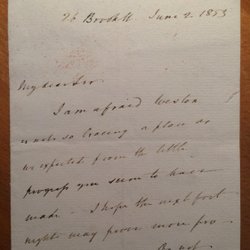 26 Brook St. June 2. 1853
My dear Sir.
I am afraid Weston
is not so bracing a place as
we expected from the little
progress you seem to have
made. I hope the next fort
night may prove more pro-